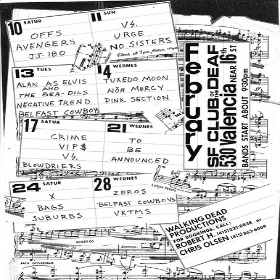 10 SATUR
OFFS
AVENGERS
JJ 180
11 SUN
VS.
URGE
NO SISTERS
13 TUES
ALAN AS ELVIS
AND THE
BEA-DILS
NEGATIVE TREND
BELFAST COWBOY
14 WEDNES
TUXEDO MOON
NON MERCY
PINK SECTION
17 SATUR
CRIME
VIPS
VS.
BLOWDRIERS
21 WEDNES
TO
BE
ANNOUNCED
24 SATUR
X
BAGS
SUBURBS
28 WEDNES
ZEROS
BELFAST COWBOYS
VKTMS
February
SF CLUB OF THE DEAF
530 Valencia NEAR 16th ST
BANDS START ABOUT 930pm
WALKING DEAD
PRODUCTIONS
FOR BOOKINGS, CALL
ROBERT H.
CHRIS OLSEN